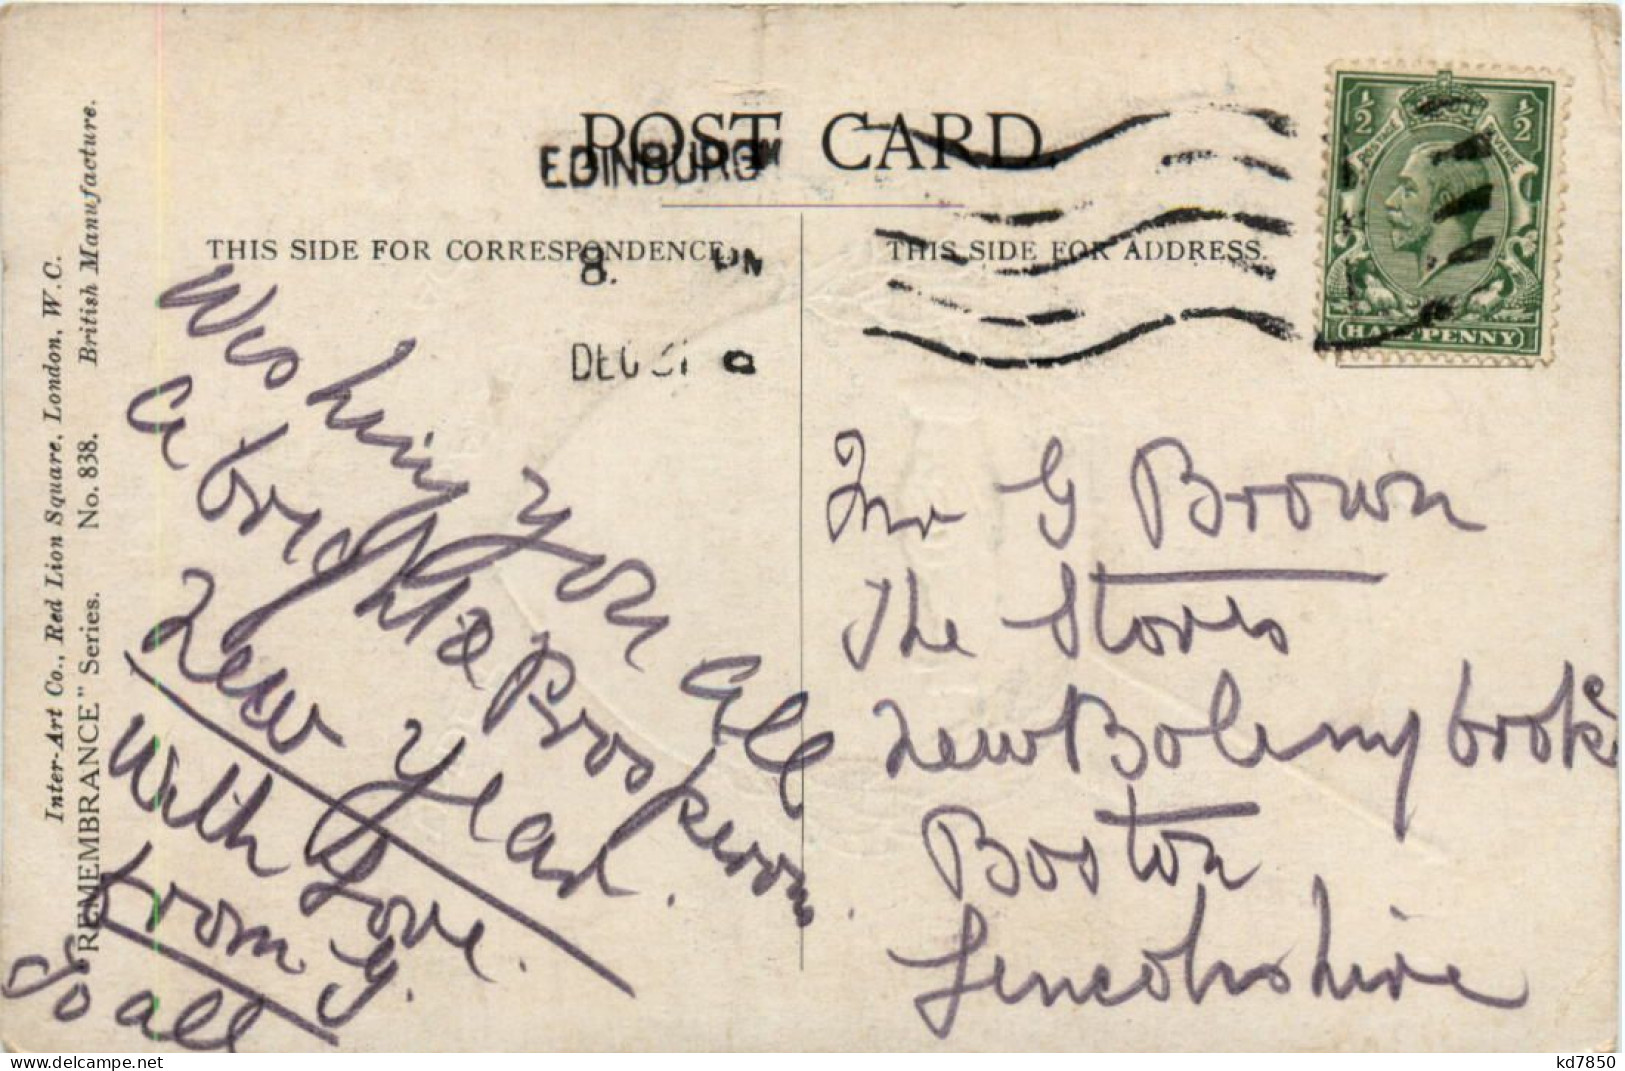 POST CARD.
EDINBURGH
THIS SIDE FOR CORRESPONDENCE.
THIS SIDE FOR ADDRESS.
8. PM
DEC 31
½ ½
POSTAGE REVENUE
HALFPENNY
Inter-Art Co., Red Lion Square, London, W.C.
"REMEMBRANCE" Series. No. 838. British Manufacture.
Wishing you all
a bright & Prosperous
New Year.
With Love.
from G.
To all
Mr G Brown
The Stores
New Bolingbroke
Boston
Lincolnshire
delcampe.net
kd7850